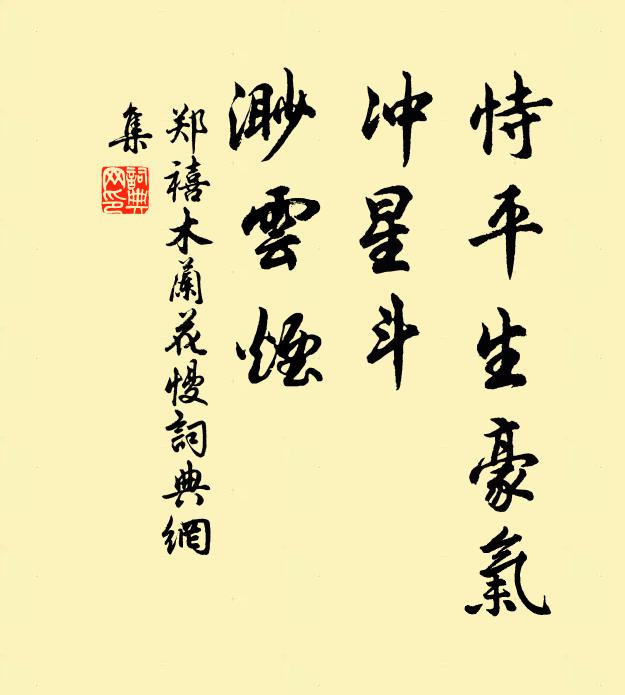 恃平生豪氣
冲星斗
渺雲煙
郑禧木蘭花慢詞典網
集
詞典网印